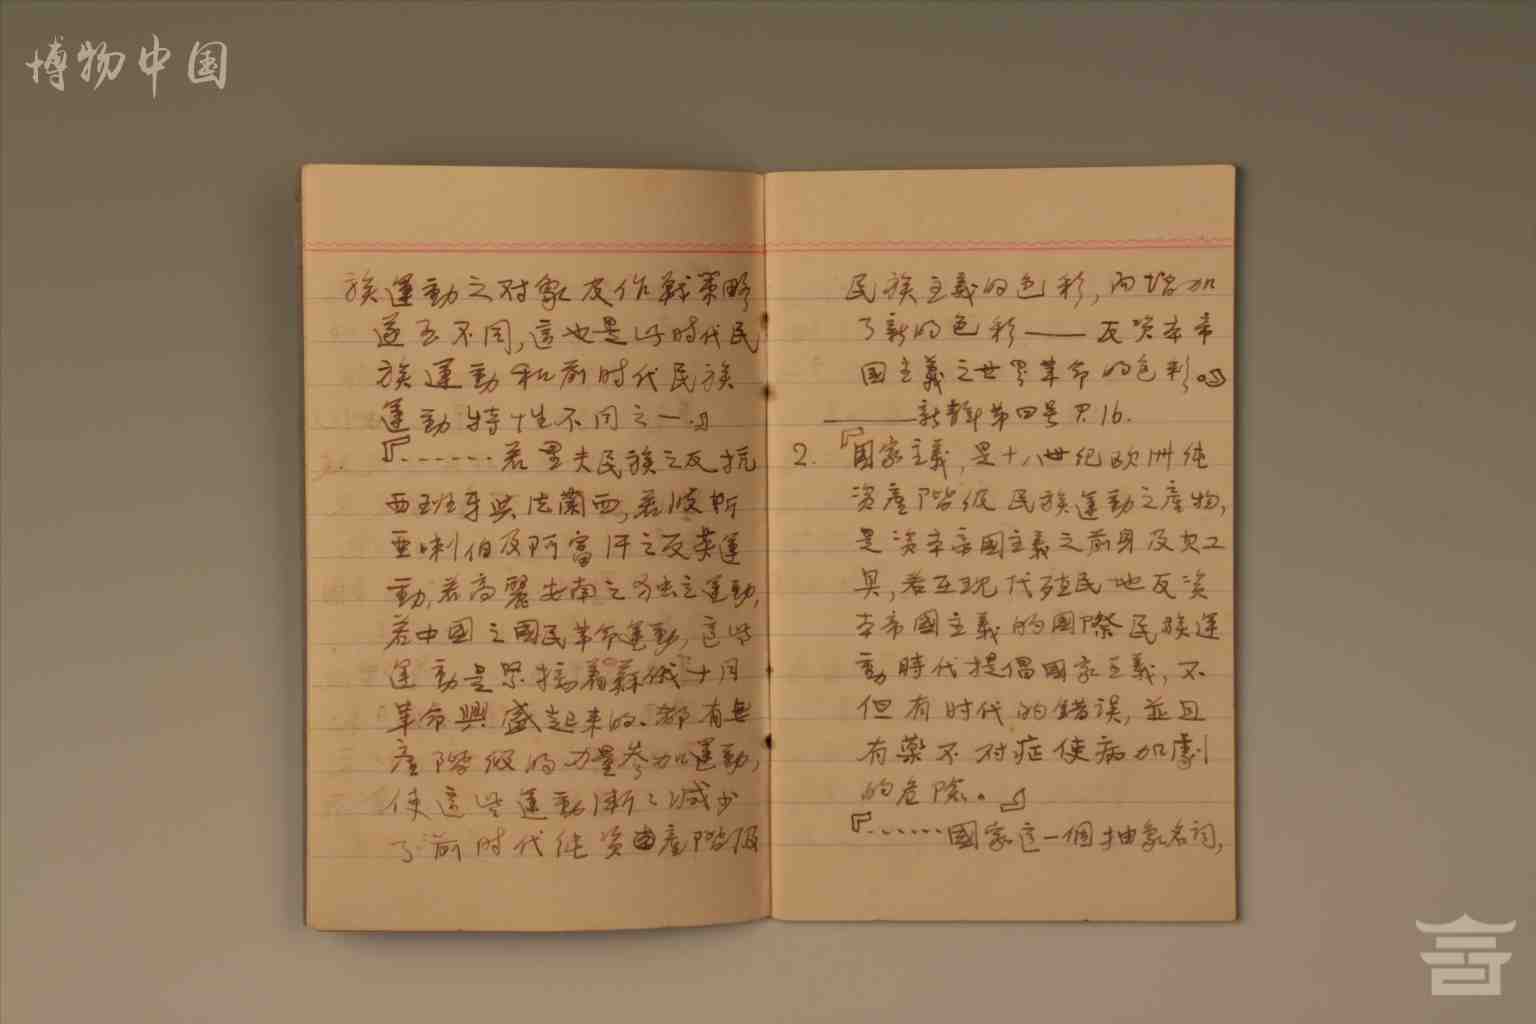 博物中国
族運動之对象及作戰策略
遂至不同,這也是此时代民
族運動和前时代民族
運動特性不同之一.』
『……若里夫民族之反抗
西班牙與法蘭西,若波斯
亜喇伯及阿富汗之反英運
動,若高麗安南之独立運動,
若中国之國民革命運動,這些
運動是緊接着蘇俄十月
革命興盛起来的.都有無
產階級的力量參加運動,
使這些運動漸々減少
了前时代純資產階级
民族主義的色彩,而增加
了新的色彩——反资本帝
国主義之世界革命的色彩。』
——新靑年第四号 P.16.
2. 『国家主義,是十八世纪欧洲纯
资產階级民族運動之產物,
是资本帝國主義之前身及其工
具,若在现代殖民地反资
本帝國主義的國際民族運
動時代提倡國家主義,不
但有时代的错误,並且
有藥不对症使病加劇
的危險。』
『……國家這一個抽象名词,